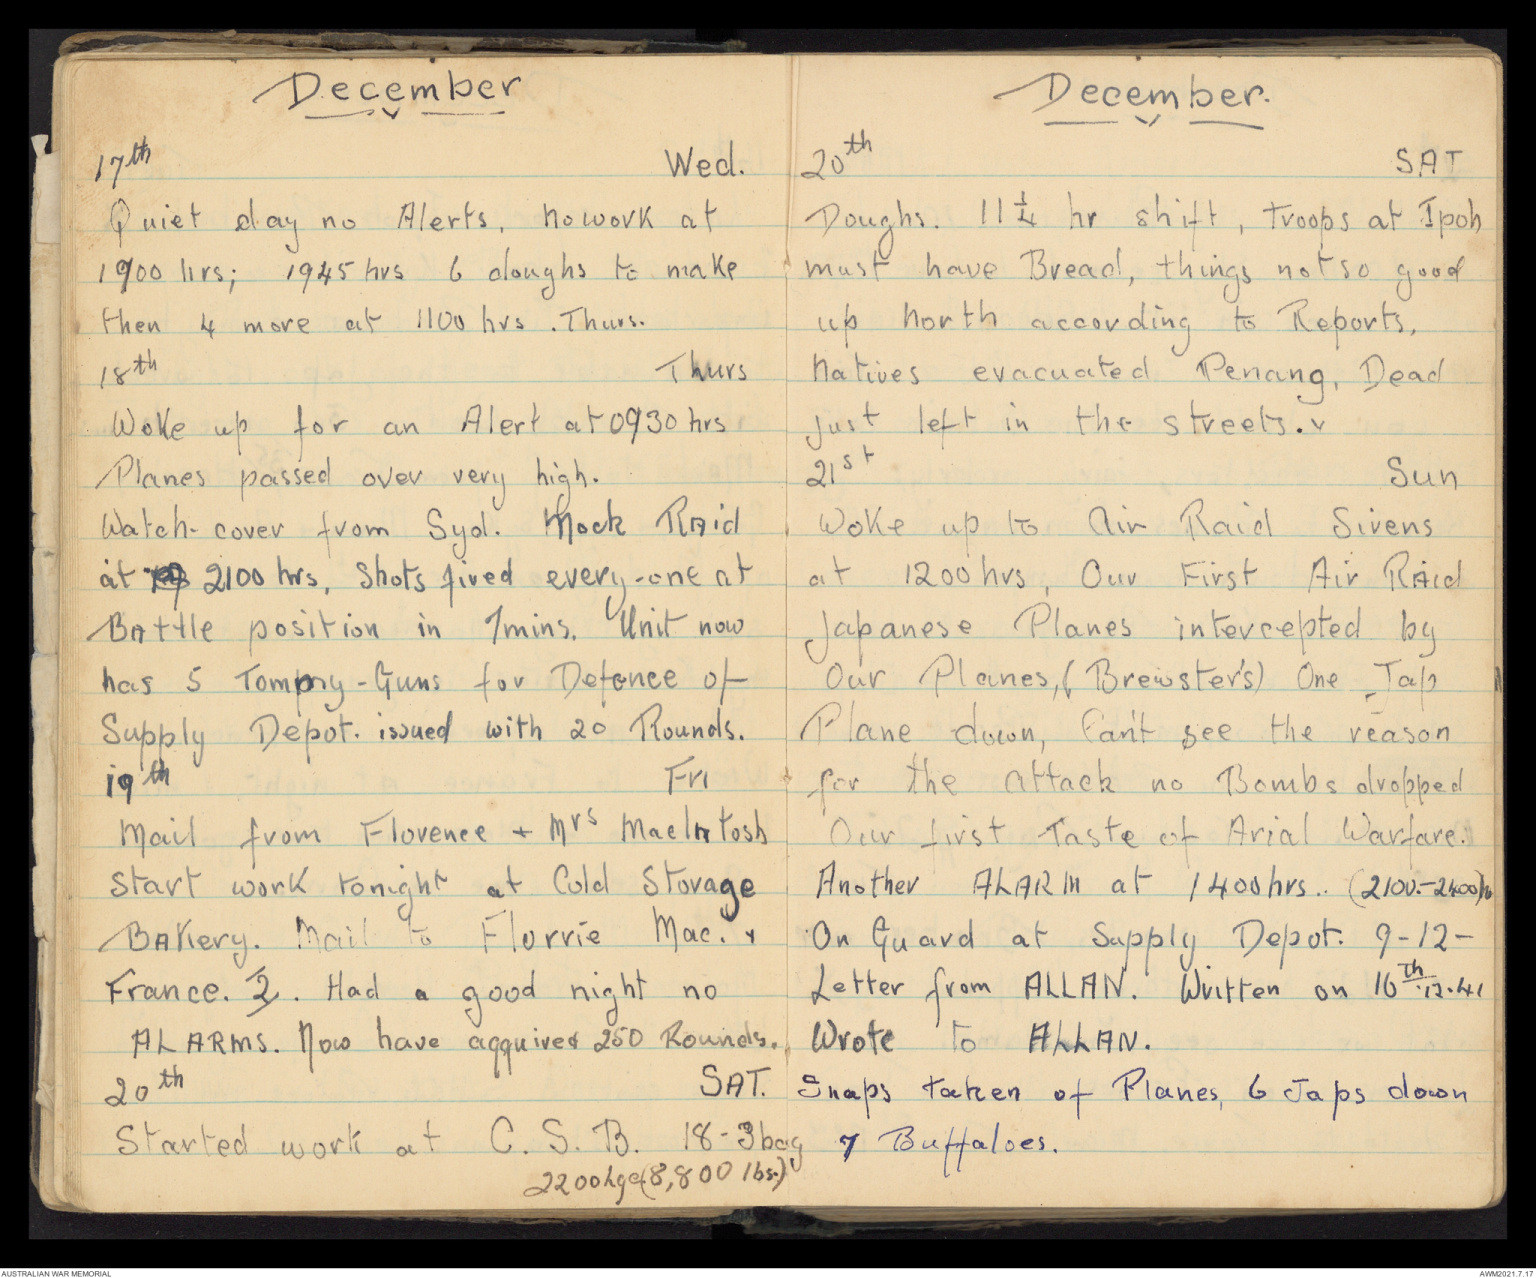 December
17th Wed.
Quiet day no Alerts, no work at
1900 hrs; 1945 hrs 6 doughs to make
then 4 more at 1100 hrs. Thurs.
18th Thurs
Woke up for an Alert at 0930 hrs
Planes passed over very high.
Watch-cover from Syd. Mock RAid
at 2100 hrs, Shots fired every-one at
BAttle position in 7mins. Unit now
has 5 Tommy-Guns for Defence of
Supply Depot. issued with 20 Rounds.
19th Fri
Mail from Florence + Mrs MacIntosh
Start work tonight at Cold Storage
BAKery. Mail to Florrie Mac. +
France. 2. Had a good night no
ALARMS. Now have acquired 250 Rounds.
20th SAT.
Started work at C. S. B. 18-3bag
2200 lge (8,800 lbs.)
December.
20th SAT
Doughs. 11 1/4 hr shift, troops at Ipoh
must have Bread, things not so good
up North according to Reports,
Natives evacuated Penang, Dead
just left in the streets.
21st Sun
Woke up to Air Raid Sirens
at 1200 hrs, Our First Air RAid
Japanese Planes intercepted by
Our Planes, (Brewster's) One Jap
Plane down, Can't see the reason
for the attack no Bombs dropped
Our first Taste of Arial Warfare.
Another ALARM at 1400 hrs.. (2100-2400)
On Guard at Supply Depot. 9-12-
Letter from ALLAN. Written on 16th.12.41
Wrote to ALLAN.
Snaps taken of Planes, 6 Japs down
7 Buffaloes.
AUSTRALIAN WAR MEMORIAL
AWM2021.7.17